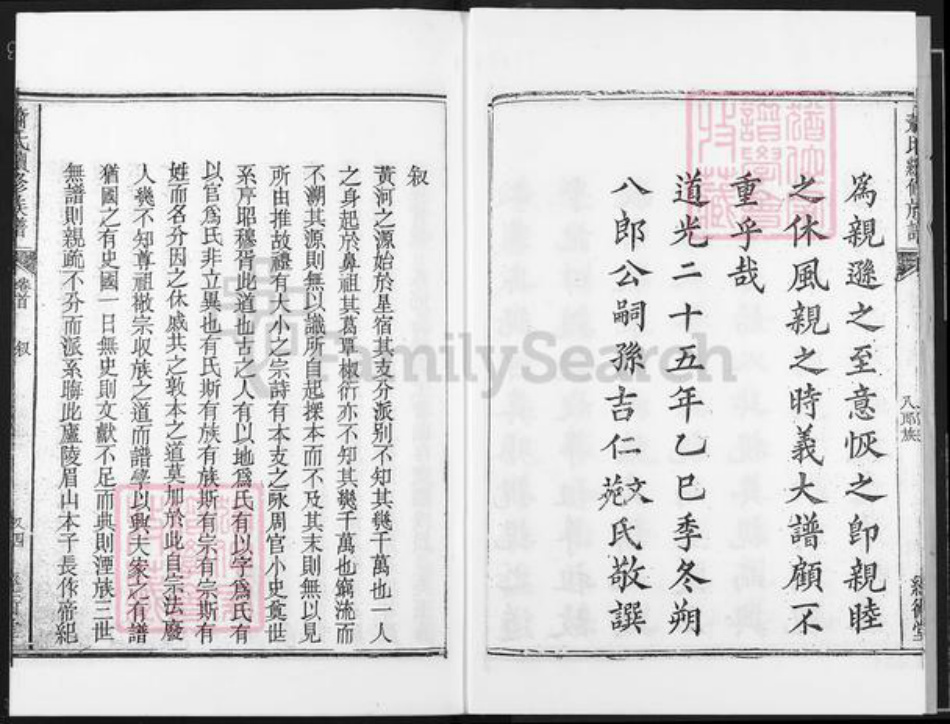 為親遜之至意恢之卽親睦
之休風親之時義大譜顧不
重乎哉
道光二十五年乙巳季冬朔
八郎公嗣孫吉仁文苑氏敬譔
八郎族
敘
黃河之源始於星宿其支分派别不知其幾千萬也一人
之身起於鼻祖其葛覃椒衍亦不知其幾千萬也窮流而
不溯其源則無以識所自起探本而不及其末則無以見
所由推故禮有大小之宗詩有本支之詠周官小史奠世
系序昭穆胥此道也古之人有以地爲氏有以字爲氏有
以官爲氏非立異也有氏斯有族有族斯有宗有宗斯有
姓而名分因之休戚共之敦本之道莫加於此自宗法廢
人幾不知尊祖敬宗收族之道而譜學以興夫家之有譜
猶國之有史國一日無史則文獻不足而典則湮族三世
無譜則親疏不分而派系晦此廬陵眉山本子長作帝紀
蕭氏續修族譜
卷首
敘
FamilySearch